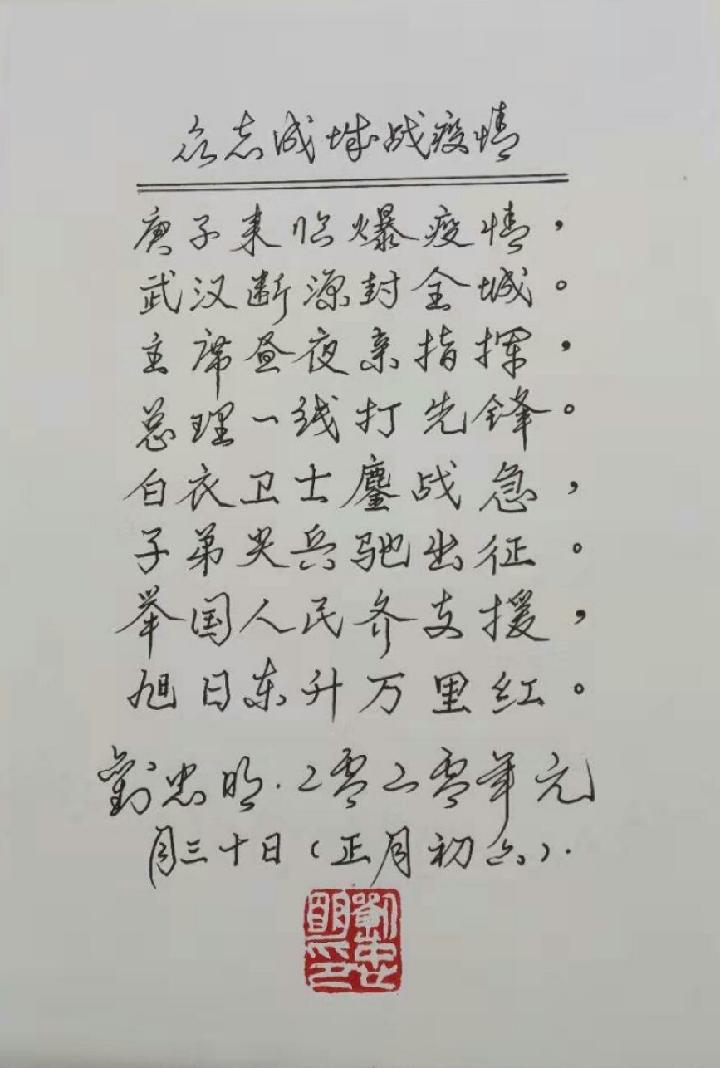 众志成城战疫情
庚子来临爆疫情，
武汉断源封全城。
主席昼夜亲指挥，
总理一线打先锋。
白衣卫士鏖战急，
子弟兵驰出征。
举国人民齐支援，
旭日东升万里红。
劉忠明.二零二零年元
月三十日（正月初六）.
劉忠明印